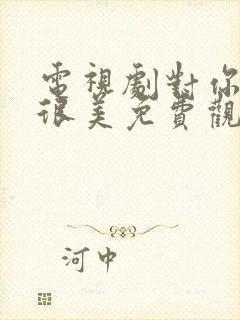 電視劇對你
很美免費觀
河中